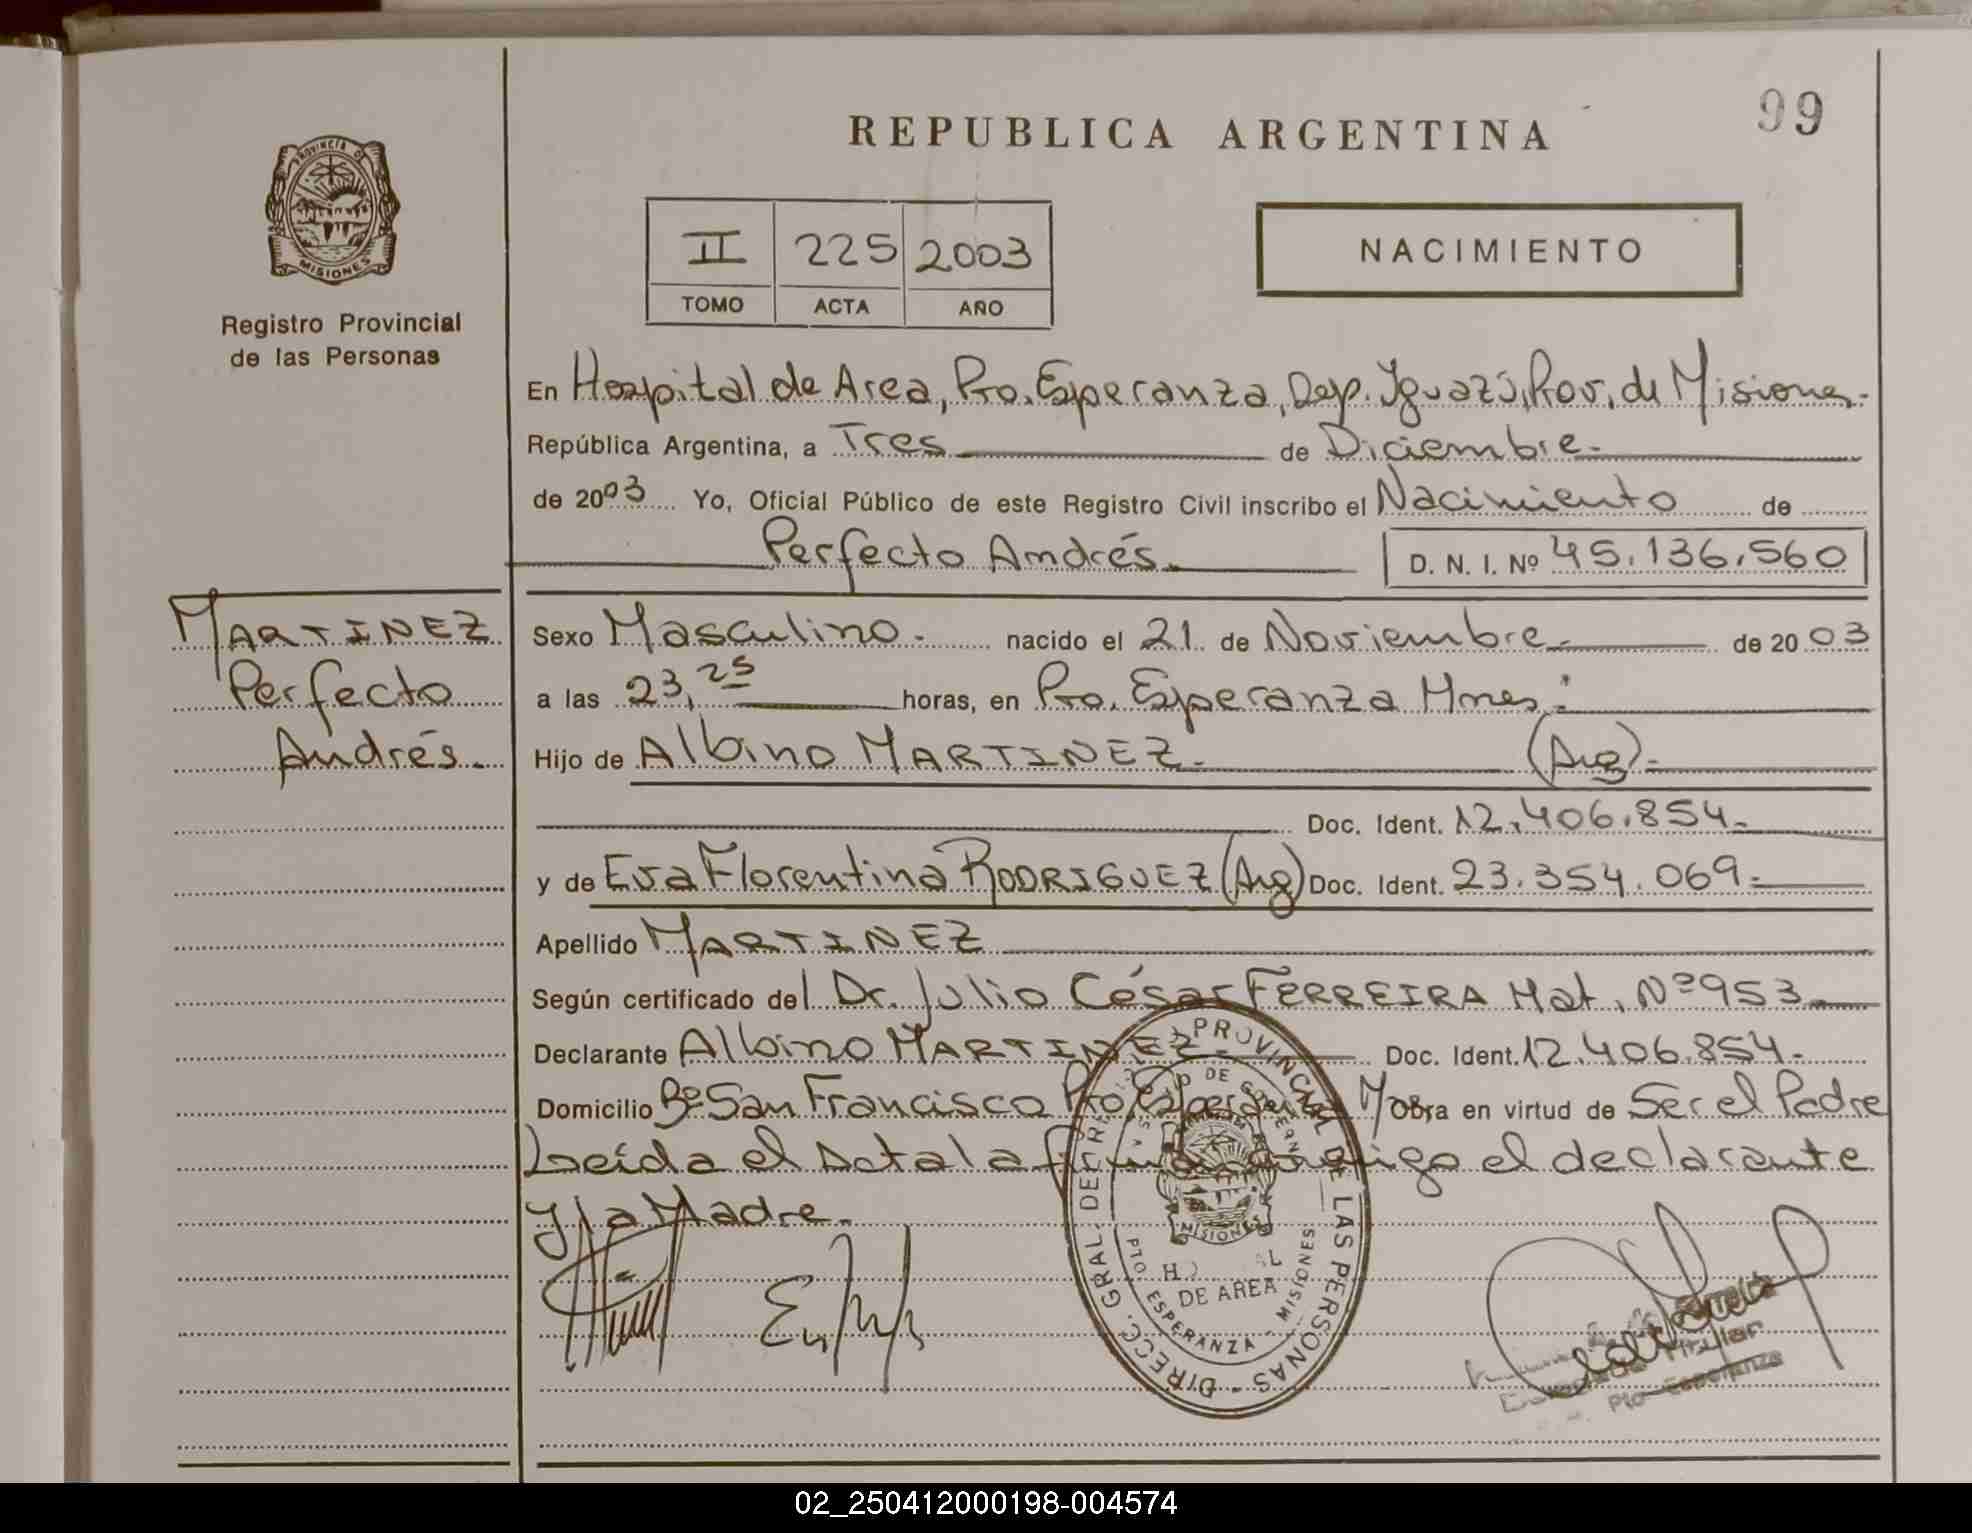 99
REPUBLICA ARGENTINA
PROVINCIA DE
MISIONES
Registro Provincial
de las Personas
II 225 2003
TOMO ACTA AÑO
NACIMIENTO
En Hospital de Area, Pto. Esperanza, Dep. Iguazú, Prov. de Misiones.-
República Argentina, a Tres de Diciembre.-
de 2003 Yo, Oficial Público de este Registro Civil inscribo el Nacimiento de
Perfecto Andrés.
D. N. I. Nº 45.136.560
MARTINEZ
Perfecto
Andrés.-
Sexo Masculino.- nacido el 21 de Noviembre.- de 2003
a las 23,25 horas, en Pto. Esperanza Mnes.
Hijo de Albino MARTINEZ.- (Arg).-
Doc. Ident. 12.406.854.-
y de Eva Florentina RODRIGUEZ (Arg) Doc. Ident. 23.354.069.-
Apellido MARTINEZ
Según certificado del Dr. Julio César FERREIRA Mat. Nº 953
Declarante Albino MARTINEZ.- Doc. Ident. 12.406.854.-
Domicilio Bº San Francisco Pto. Esperanza Obra en virtud de Ser el Padre
Leída el Acta la firma conmigo el declarante
y la Madre.-
DIRECC. GRAL. DEL REG. PROVINCIAL DE LAS PERSONAS -
DE GOBIERNO
MISIONES
DE AREA
PTO. ESPERANZA - MISIONES
Titular
Pto Esperanza
02_250412000198-004574